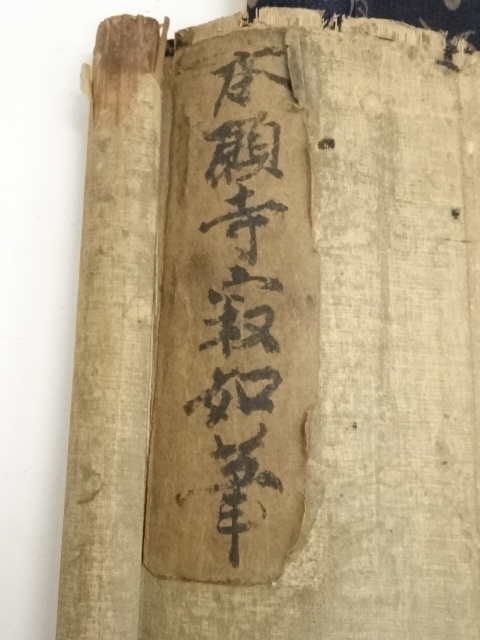 本願寺寂如筆